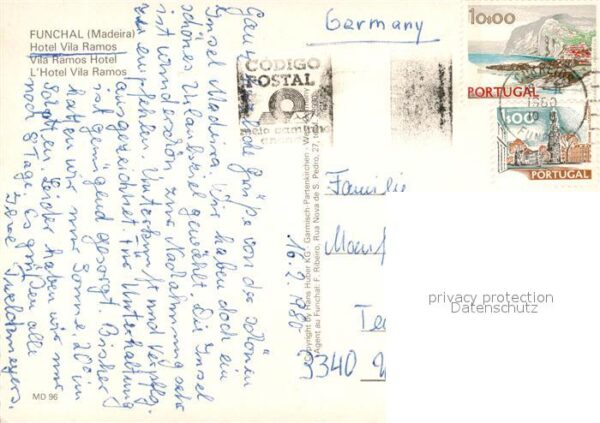 FUNCHAL (Madeira)
Hotel Vila Ramos
Vila Ramos Hotel
L'Hotel Vila Ramos
Germany
CÓDIGO
POSTAL
meio caminho
andado
10$00
PORTUGAL
1$00
PORTUGAL
FUNCHAL
1980
Ganz liebe Grüße von der schönen
Insel Madeira. Wir haben doch ein
schönes Urlaubsziel gewählt. Die Insel
ist wunderschön zur Nachahmung sehr
zu empfehlen. Unterkunft und Verpflg.
ausgezeichnet. Für Unterhaltung
ist genügend gesorgt. Bisher
hatten wir nur Sonne, 20° im
Schatten. Leider haben wir nur
noch 8 Tage. Es grüßen alle
16.2.1980
Copyright by Hans Huber KG · Garmisch-Partenkirchen
Agent au Funchal: F. Ribeiro, Rua Nova de S. Pedro, 27,
Familie
Manf
Te
3340 W
privacy protection
Datenschutz
MD 96